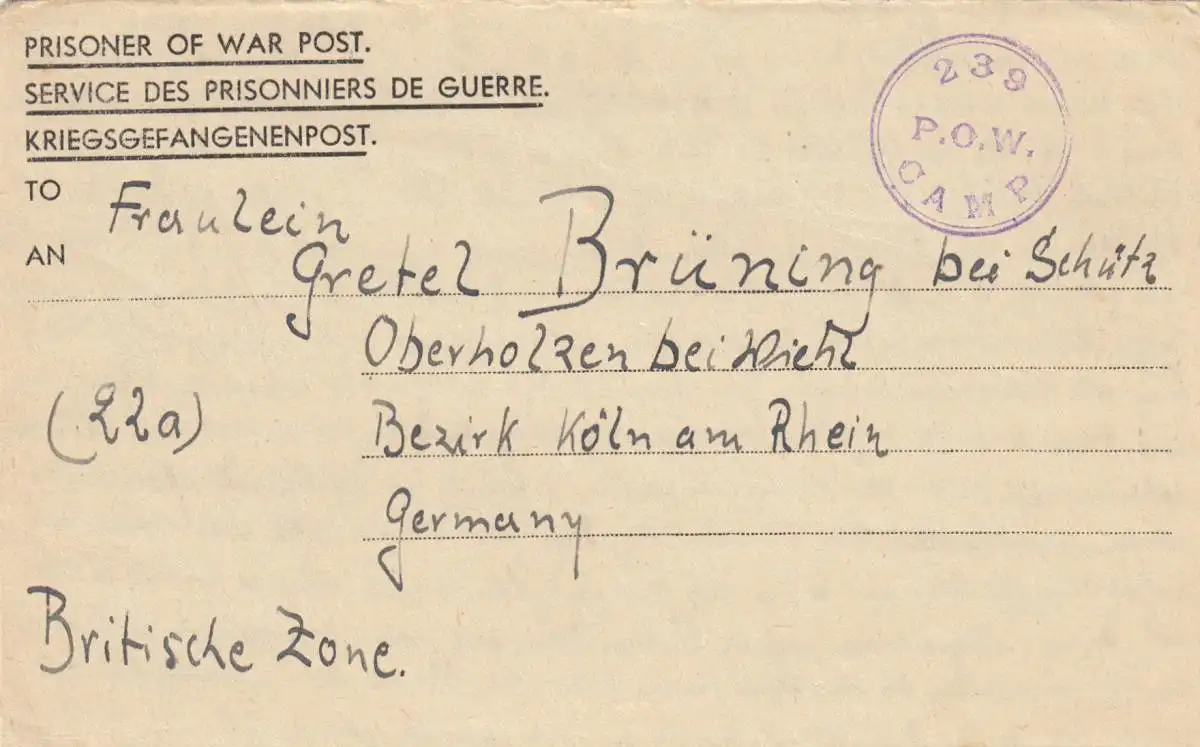 PRISONER OF WAR POST.
SERVICE DES PRISONNIERS DE GUERRE.
KRIEGSGEFANGENENPOST.
239
P.O.W.
CAMP
TO
Fraulein
AN
Gretel Brüning bei Schütz
Oberholzen bei Wiehl
(22a)
Bezirk Köln am Rhein
Germany
Britische Zone.